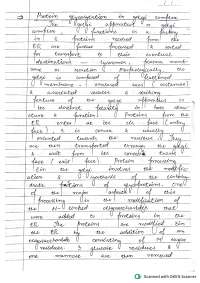 → Protein glycosylation in golgi complex
The golgi apparatus or golgi
complex functions as a factory
in which proteins received from the
ER are further processed & sorted
for transport to their eventual
destinations - lysosomes, plasma memb
or secretion. Morphologically the
golgi is composed of flattened
membrane enclosed sacs (cisternae)
& associated vesicles. A striking
feature of the golgi apparatus is
its distinct polarity in both
structure & function. Proteins from the
ER enter at its cis face (entry
face), which is convex & usually
oriented towards the nucleus. They
are then transported through the golgi
& exit from its concave trans
face (exit face). Protein processing
within the golgi involves the modific
ation & synthesis of the carbohydrate
portions of glycoproteins. One
of the major aspects of this
processing is the modification of
the N-linked oligosaccharides that
were added to proteins in the
ER. The proteins are modified within
the ER by the addition of an
oligosaccharide consisting of 14 sugar
residues. 3 glucose residues &
one mannose are then removed
Scanned with OKEN Scanner